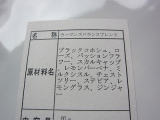 名 称 ウーマンズバランスブレンド
原材料名
ブラックコホシュ、ロ
ーズ、パッションフラ
ワー、スカルキャッ
プ、レモンバーベナ、ミ
ルクシスル、チェスト
ツリー、ステビア、レ
モングラス、ジンジャ
ー